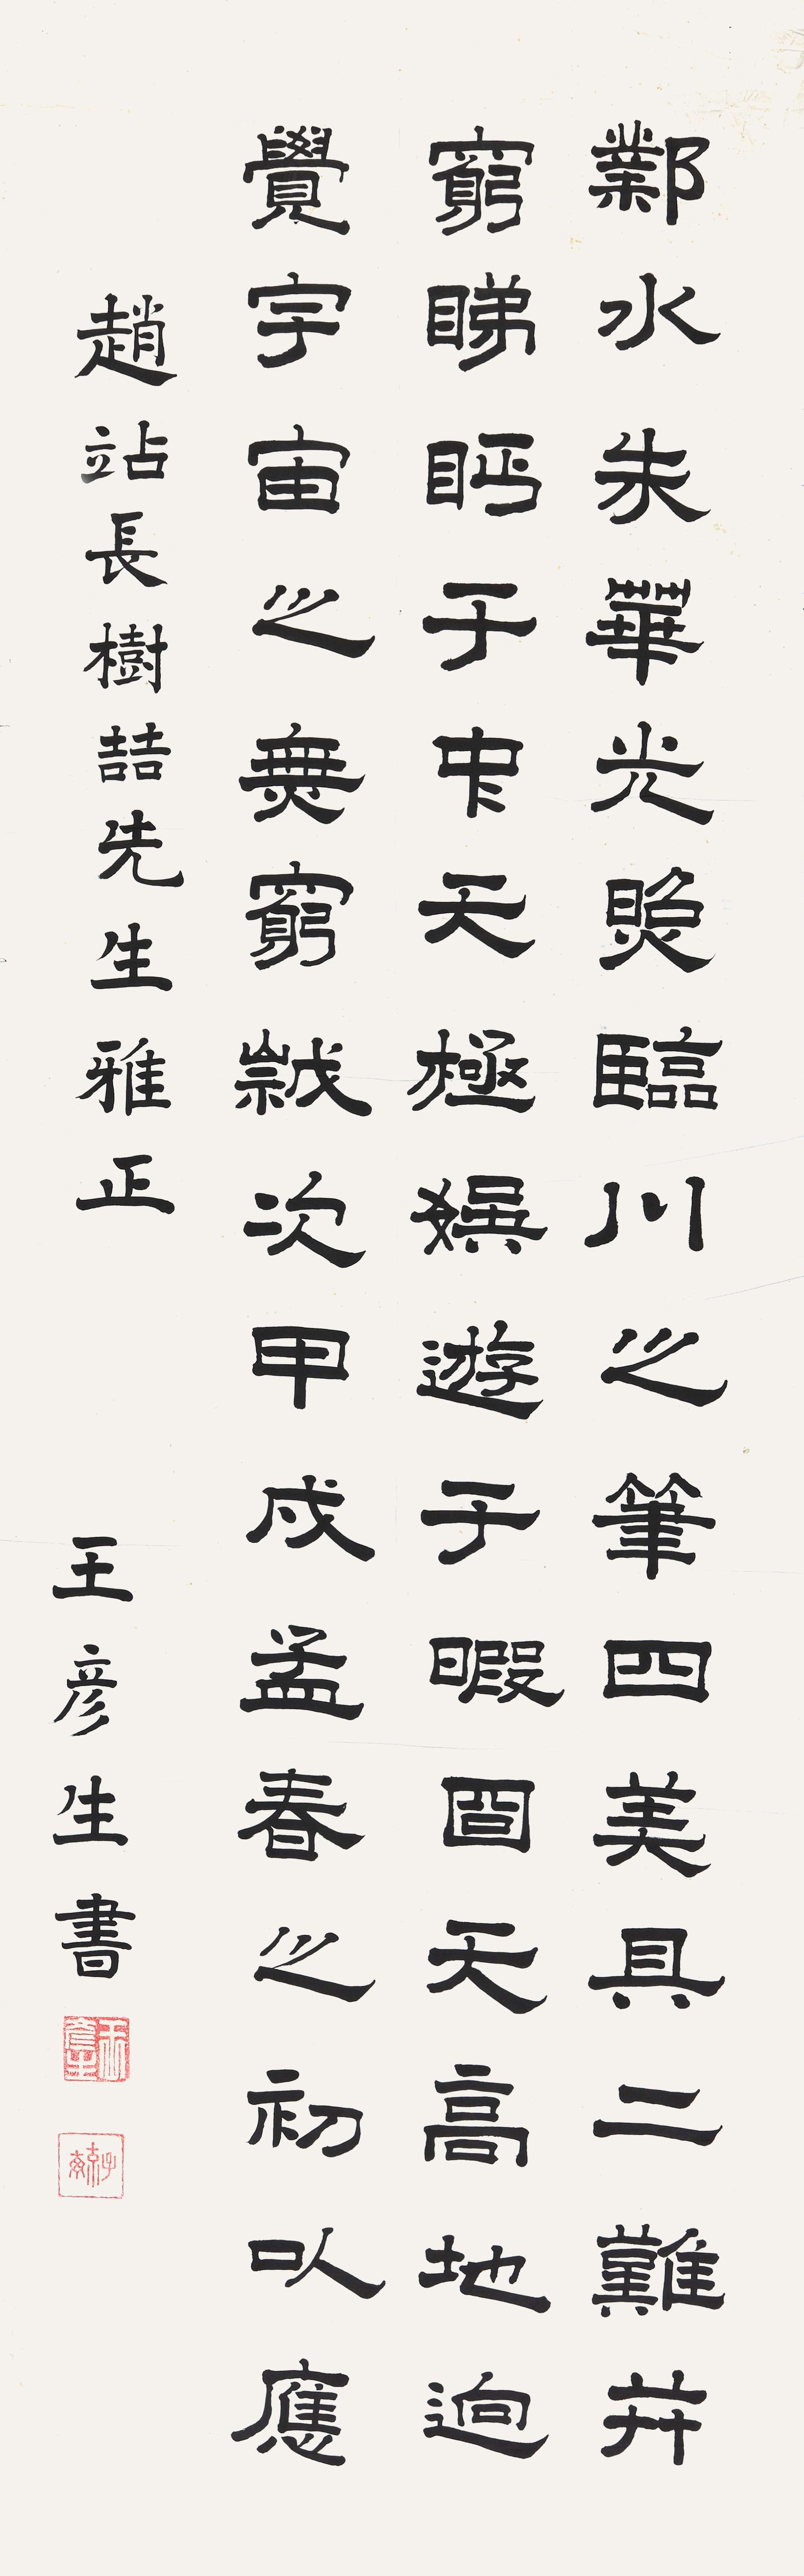 鄴水朱華光照臨川之筆四美具二難并
窮睇眄于中天極娛遊于暇日天高地迥
覺宇宙之無窮歲次甲戌孟春之初以應
趙站長樹喆先生雅正
王彥生書
王彥生